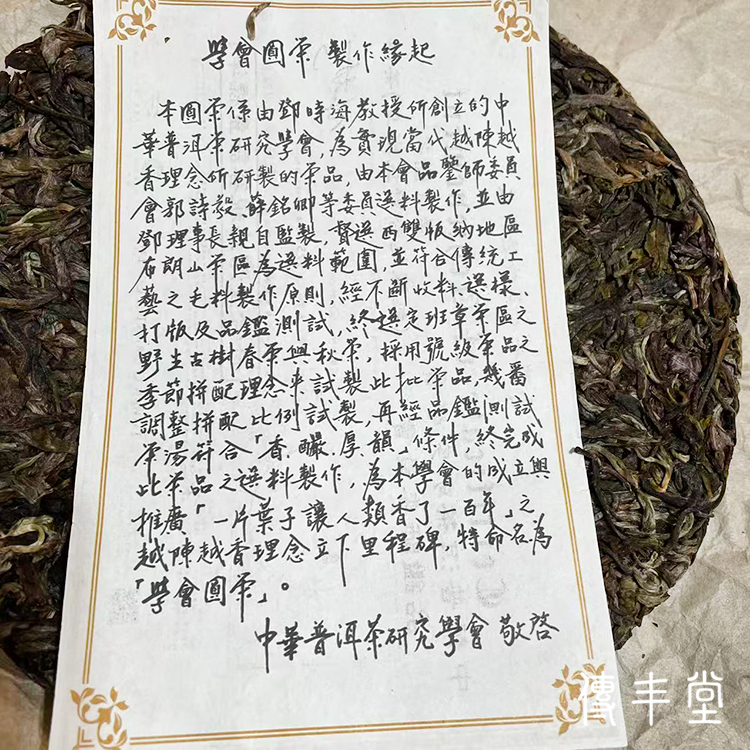 學會圓茶 製作緣起
本圓茶係由鄧時海教授所創立的中
華普洱茶研究學會,為實現當代越陳越
香理念所研製的茶品,由本會品鑒師委員
會郭詩毅、薛銘卿等委員選料製作,並由
鄧理事長親自監製,督選西雙版納地區
布朗山茶區為選料範圍,並符合傳統工
藝之毛料製作原則,經不斷收料、選樣、
打版及品鑑測試,終選定班章茶區之
野生古樹春茶與秋茶,採用號級茶品之
季節拼配理念來試製此批茶品,幾番
調整拼配比例試製,再經品鑑測試
茶湯符合「香、釅、厚、韻」條件,終完成
此茶品之選料製作,為本學會的成立與
推廣「一片葉子讓人類香了一百年」之
越陳越香理念立下里程碑,特命名為
「學會圓茶」。
中華普洱茶研究學會 敬啓
傳丰堂